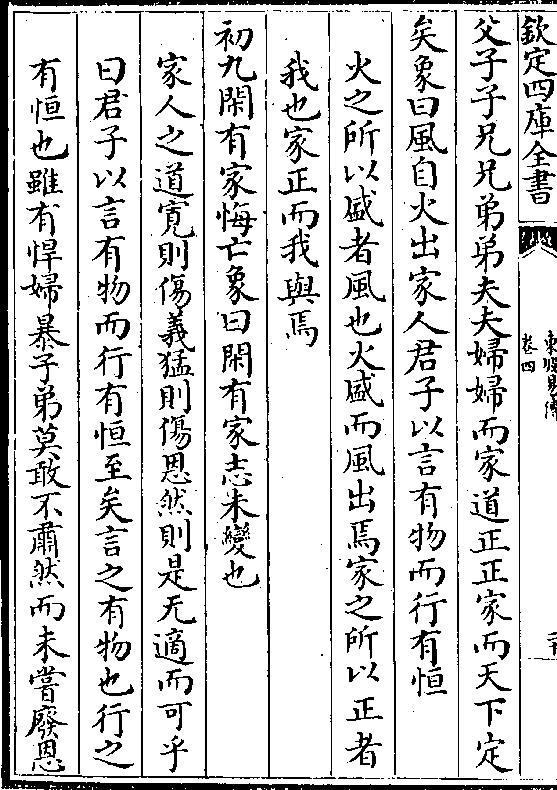 欽定四庫全書
東坡易傳
卷四
父子子兄兄弟弟夫夫婦婦而家道正正家而天下定
矣象曰風自火出家人君子以言有物而行有恒
火之所以盛者風也火盛而風出焉家之所以正者
我也家正而我與焉
初九閑有家悔亡象曰閑有家志未變也
家人之道寛則傷義猛則傷恩然則是无適而可乎
曰君子以言有物而行有恒至矣言之有物也行之
有恒也雖有悍婦暴子弟莫敢不肅然而未嘗廢恩